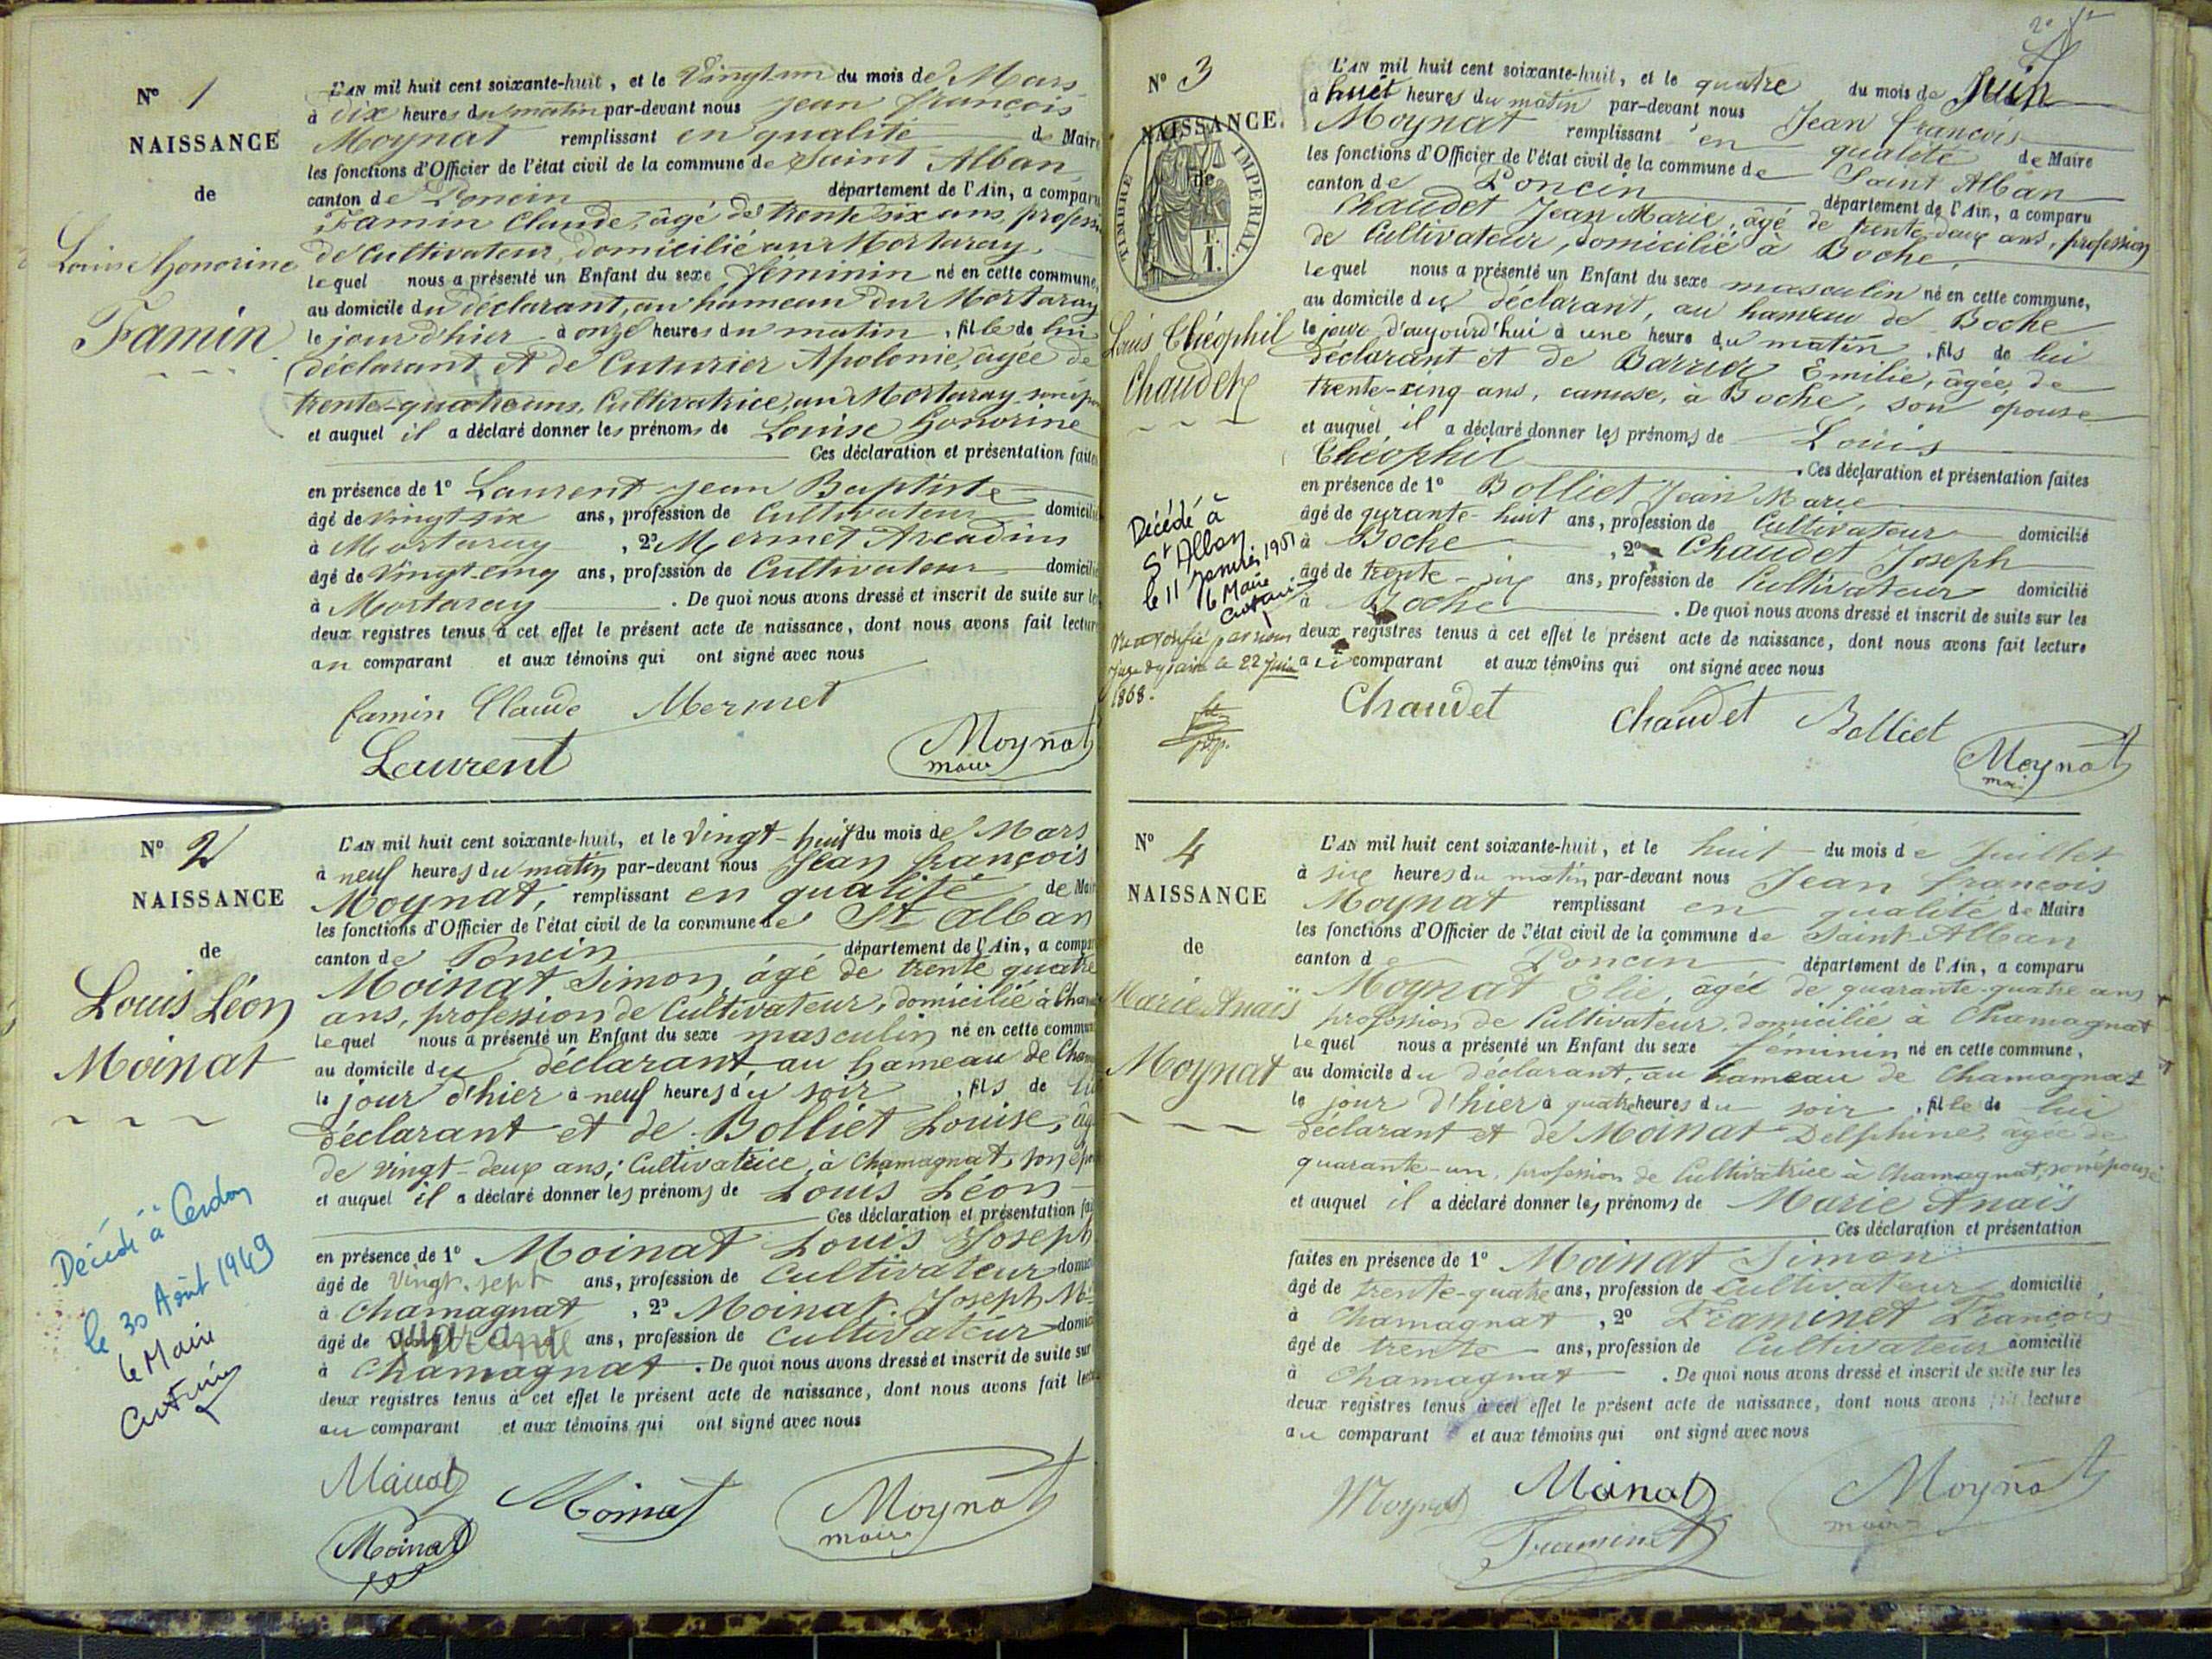 N° 1
NAISSANCE
de
Louise Honorine
Famin
L'AN mil huit cent soixante-huit, et le Vingt-un du mois de Mars
à dix heures du matin par-devant nous Jean françois
Moynat remplissant en qualité de Maire
les fonctions d'Officier de l'état civil de la commune de Saint Alban
canton de Poncin département de l'Ain, a comparu
Famin Claude, âgé de trente six ans, profession
de Cultivateur, domicilié au Mortaray
lequel nous a présenté un Enfant du sexe féminin né en cette commune,
au domicile du déclarant, au hameau du Mortaray
le jour d'hier à onze heures du matin, fille de lui
déclarant et de Cuturier Apolonie, âgée de
trente-quatre ans, Cultivatrice, au Mortaray
et auquel il a déclaré donner les prénoms de Louise Honorine
Ces déclaration et présentation faites
en présence de 1° Laurent Jean Baptiste
âgé de vingt six ans, profession de Cultivateur domicilié
à Mortaray, 2° Mermet Arcadius
âgé de Vingt-cinq ans, profession de Cultivateur domicilié
à Mortaray. De quoi nous avons dressé et inscrit de suite sur les
deux registres tenus à cet effet le présent acte de naissance, dont nous avons fait lecture
au comparant et aux témoins qui ont signé avec nous
famin Claude Mermet
Laurent Moynat
maire
N° 2
NAISSANCE
de
Louis Léon
Moinat
Décédé à Cerdon
le 30 Août 1949
le Maire
L'AN mil huit cent soixante-huit, et le Vingt-huit du mois de Mars
à neuf heures du matin par-devant nous Jean françois
Moynat, remplissant en qualité de Maire
les fonctions d'Officier de l'état civil de la commune de St Alban
canton de Poncin département de l'Ain, a comparu
Moinat Simon, âgé de trente quatre
ans, profession de Cultivateur, domicilié à Cha
lequel nous a présenté un Enfant du sexe masculin né en cette commune
au domicile du déclarant au hameau de Cham
le jour d'hier à neuf heures du soir, fils de lui
déclarant et de Bolliet Louise, âgé
de vingt-deux ans; Cultivatrice, à Chamagnat, son épou
et auquel il a déclaré donner les prénoms de Louis Léon
Ces déclaration et présentation fai
en présence de 1° Moinat Louis Joseph
âgé de Vingt-sept ans, profession de Cultivateur domici
à Chamagnat, 2° Moinat Joseph Mie
âgé de quarante ans, profession de cultivateur domici
à Chamagnat. De quoi nous avons dressé et inscrit de suite sur
deux registres tenus à cet effet le présent acte de naissance, dont nous avons fait lect
au comparant et aux témoins qui ont signé avec nous
Moinat Moinat Moynat
maire
Moinat
N° 3
NAISSANCE.
de
TIMBRE IMPÉRIAL
Louis Théophil
Chaudet
Décédé à
St Alban
le 11 Janvier 1951
le Maire
Vu et vérifié par nous
Juge de paix le 22 Juin
1868.
L'AN mil huit cent soixante-huit, et le quatre du mois de Juin
à huit heures du matin par-devant nous Jean françois
Moynat remplissant en qualité de Maire
les fonctions d'Officier de l'état civil de la commune de Saint Alban
canton de Poncin département de l'Ain, a comparu
Chaudet Jean Marie, âgé de trente-deux ans, profession
de Cultivateur, domicilié à Boche,
lequel nous a présenté un Enfant du sexe masculin né en cette commune,
au domicile du déclarant, au hameau de Boche
le jour d'aujourd'hui à une heure du matin, fils de lui
déclarant et de Barrier Emilie, âgée de
trente-cinq ans, canuse, à Boche, son épouse
et auquel il a déclaré donner les prénoms de Louis
Théophil. Ces déclaration et présentation faites
en présence de 1° Bolliet Jean Marie
âgé de qurante-huit ans, profession de Cultivateur domicilié
à Boche, 2° Chaudet Joseph
âgé de trente-six ans, profession de Cultivateur domicilié
à Boche. De quoi nous avons dressé et inscrit de suite sur les
deux registres tenus à cet effet le présent acte de naissance, dont nous avons fait lecture
au comparant et aux témoins qui ont signé avec nous
Chaudet Chaudet Bolliet
Moynat
N° 4
NAISSANCE
de
Marie Anaïs
Moynat
L'AN mil huit cent soixante-huit, et le huit du mois de Juillet
à six heures du matin par-devant nous Jean françois
Moynat remplissant en qualité de Maire
les fonctions d'Officier de l'état civil de la commune de Saint-Alban
canton de Poncin département de l'Ain, a comparu
Moynat Elie, âgé de quarante-quatre ans
profession de Cultivateur, domicilié à Chamagnat
lequel nous a présenté un Enfant du sexe féminin né en cette commune,
au domicile du déclarant, au hameau de Chamagnat
le jour d'hier à quatre heures du soir, fille de lui
déclarant et de Moinat Delphine, âgée de
quarante-un, profession de Cultivatrice à Chamagnat, son épouse
et auquel il a déclaré donner les prénoms de Marie Anaïs
Ces déclaration et présentation
faites en présence de 1° Moinat Simon
âgé de trente-quatre ans, profession de Cultivateur domicilié
à Chamagnat, 2° Framinet François
âgé de trente ans, profession de Cultivateur domicilié
à Chamagnat. De quoi nous avons dressé et inscrit de suite sur les
deux registres tenus à cet effet le présent acte de naissance, dont nous avons fait lecture
au comparant et aux témoins qui ont signé avec nous
Moynat Moinat Moynat
maire
Framinet